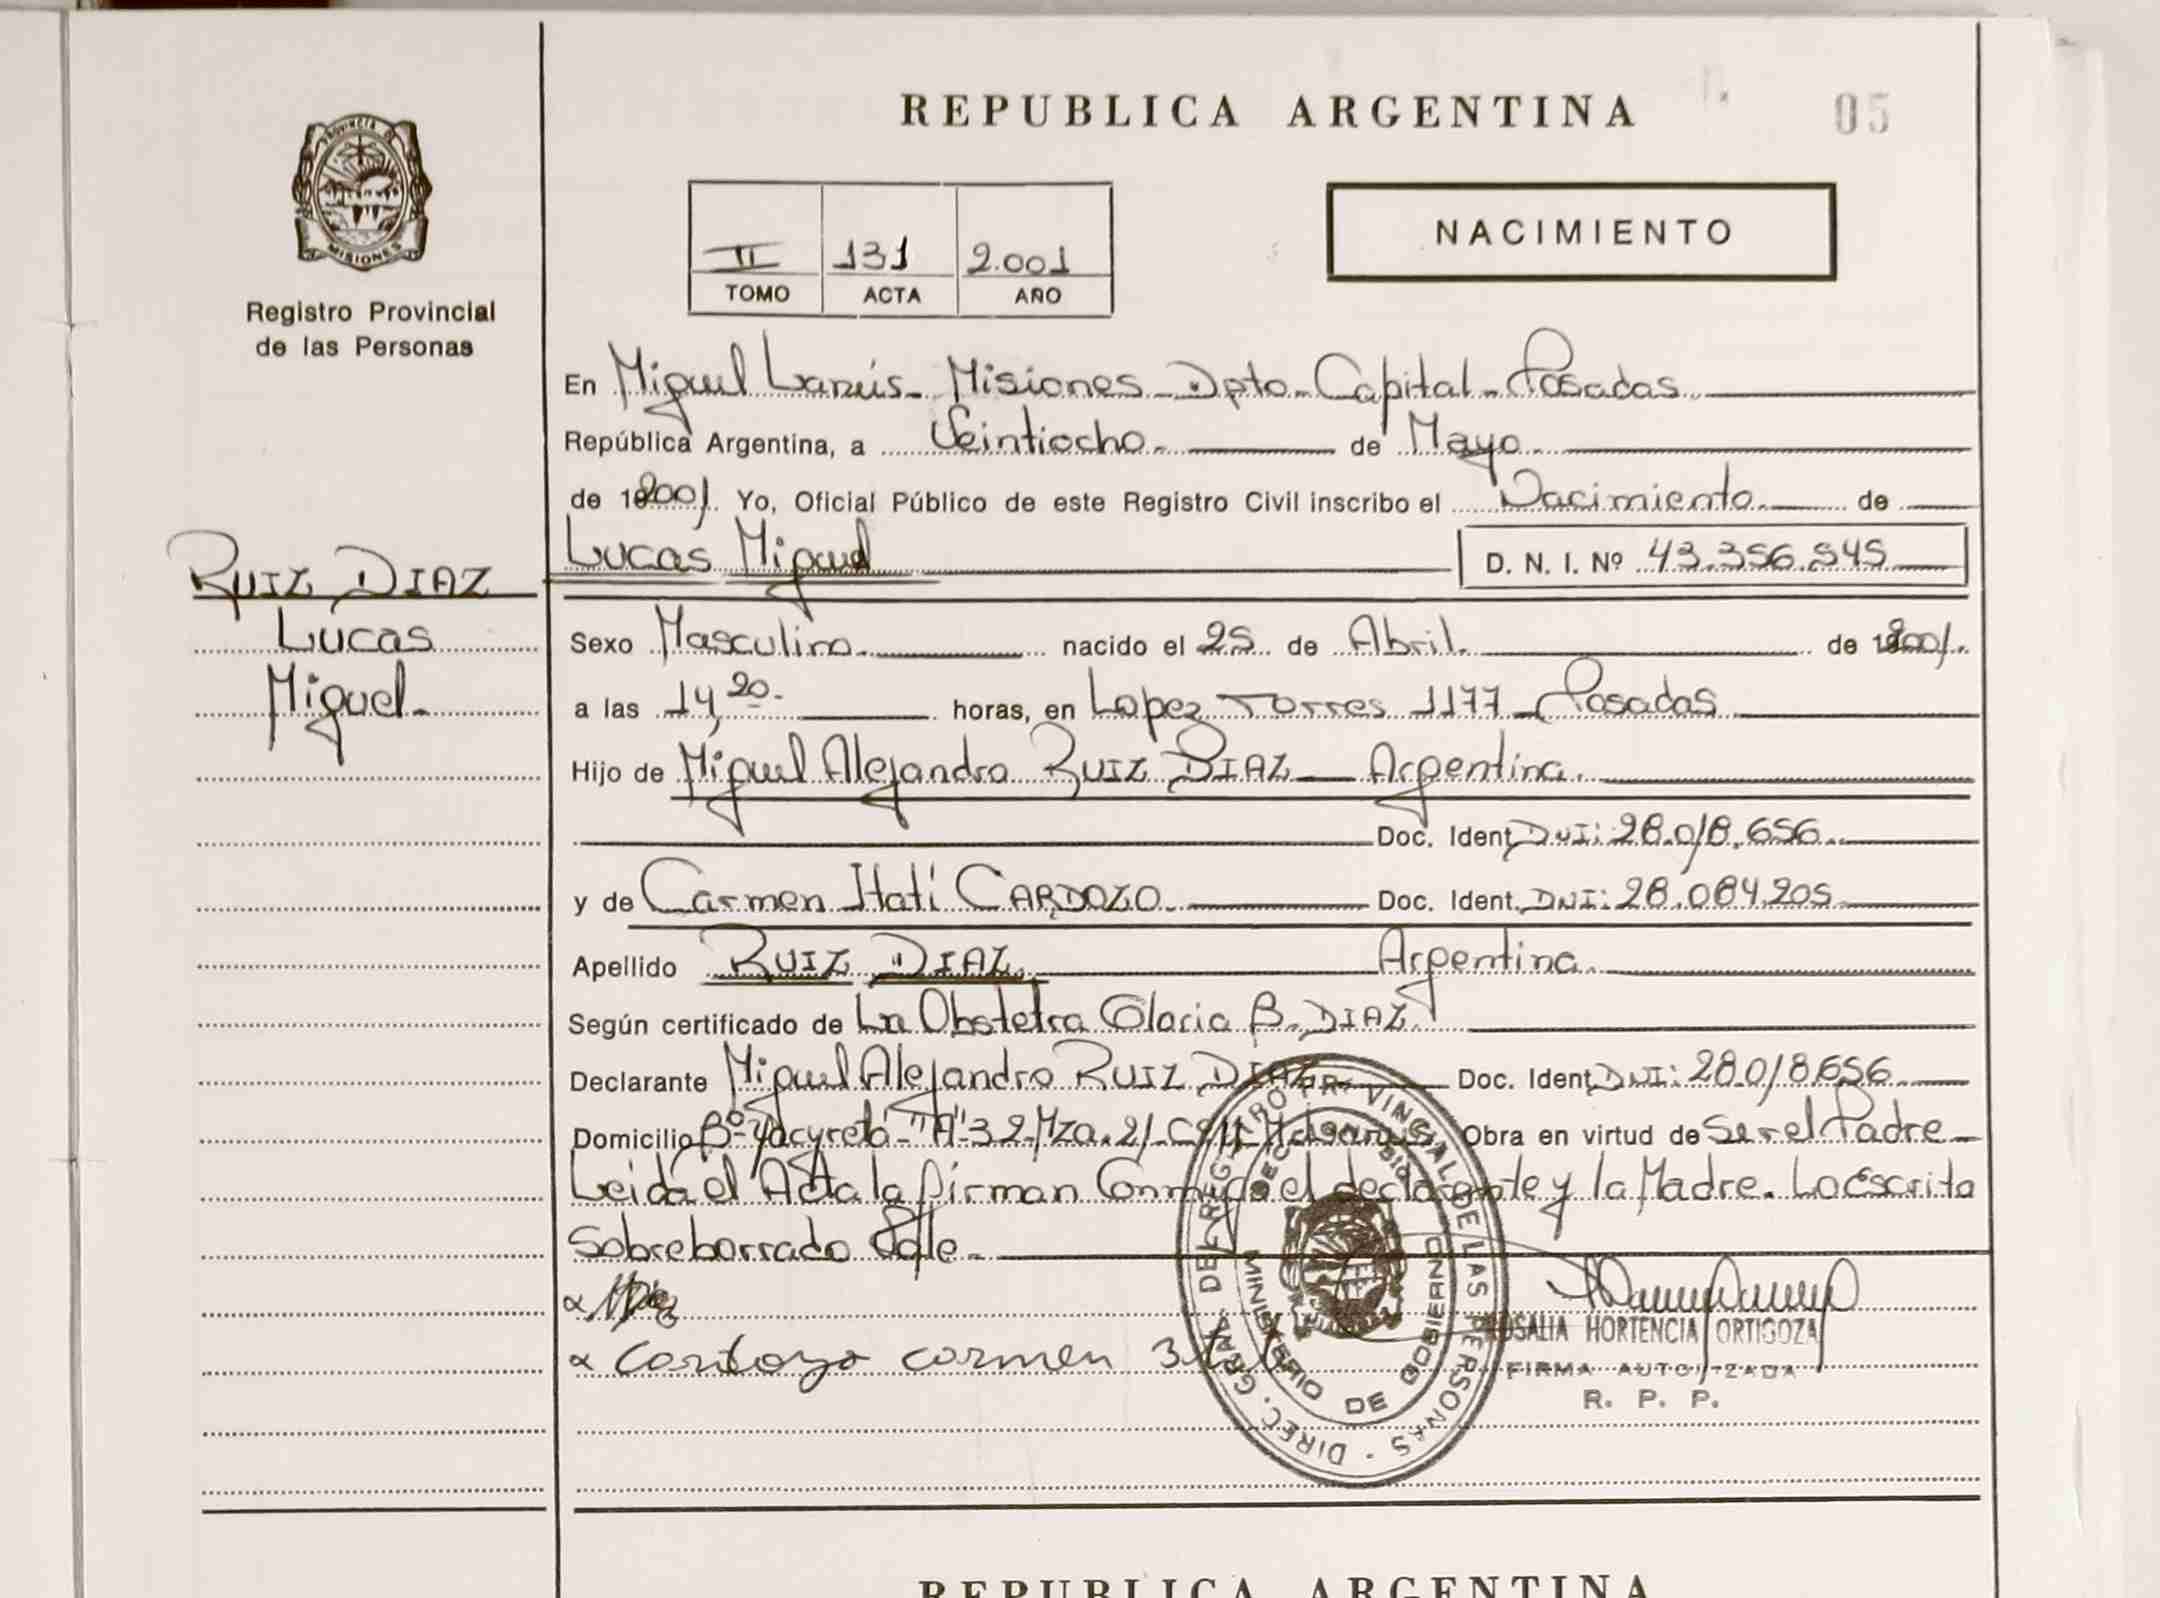 REPUBLICA ARGENTINA
05
PROVINCIA DE
MISIONES
Registro Provincial
de las Personas
II 131 2.001
TOMO ACTA AÑO
NACIMIENTO
En Miguel Lanús - Misiones - Dpto - Capital - Posadas.
República Argentina, a Veintiocho. de Mayo.
de 2001. Yo, Oficial Público de este Registro Civil inscribo el Nacimiento de
Lucas Miguel D. N. I. Nº 43.356.545
RUIZ DIAZ
Lucas
Miguel.
Sexo Masculino. nacido el 25 de Abril. de 2001.
a las 14,20. horas, en Lopez Torres 1177 - Posadas
Hijo de Miguel Alejandro RUIZ DIAZ - Argentina.
Doc. Ident. DNI: 28.018.656.
y de Carmen Itatí CARDOZO. Doc. Ident. DNI: 28.084.205
Apellido RUIZ DIAZ. Argentina.
Según certificado de La Obstetra Gloria B. DIAZ.
Declarante Miguel Alejandro RUIZ DIAZ Doc. Ident. DNI: 28.018.656
Domicilio Bº Yacyreta "A" 32 Mza. 21 Obra en virtud de Ser el Padre -
Leida el Acta la firman Conmigo el declarante y la Madre. Lo Escrito
Sobreborrado Vale.
Cardozo Carmen
DIREC. GRAL. DEL REGISTRO PROVINCIAL DE LAS PERSONAS
MINISTERIO DE GOBIERNO
ROSALIA HORTENCIA ORTIGOZA
FIRMA AUTORIZADA
R. P. P.
REPUBLICA ARGENTINA